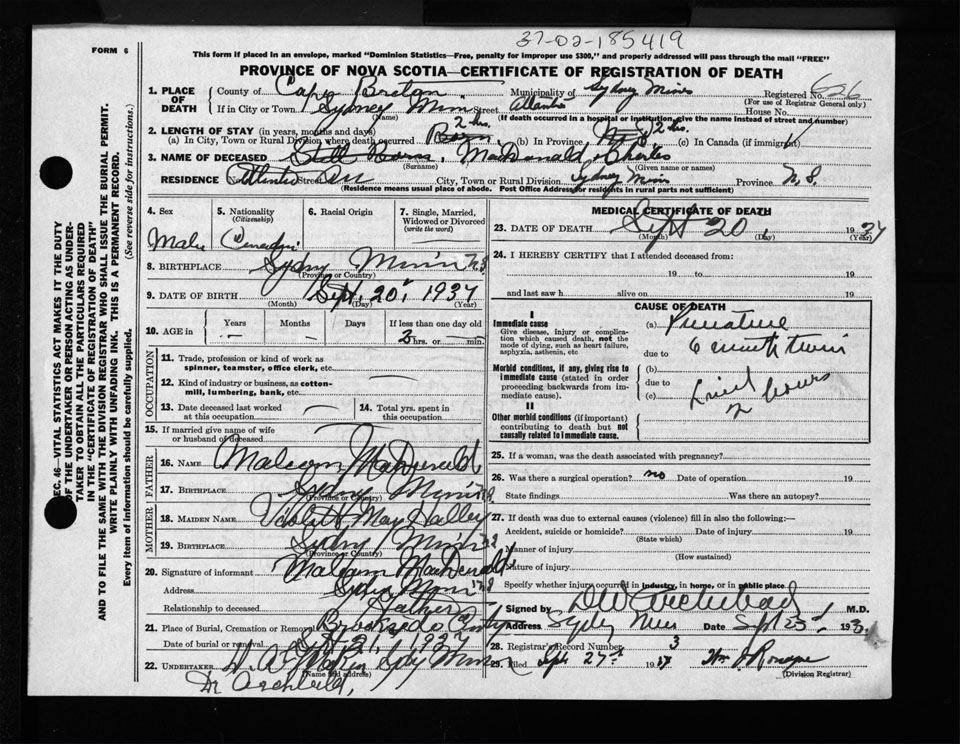 37-02-185419
FORM 6
This form if placed in an envelope, marked "Dominion Statistics—Free, penalty for improper use $300," and properly addressed will pass through the mail "FREE"
PROVINCE OF NOVA SCOTIA—CERTIFICATE OF REGISTRATION OF DEATH
1. PLACE OF DEATH County of Cape Breton Municipality of Sydney Mines Registered No. 626
(For use of Registrar General only)
If in City or Town Sydney Mines Street Atlantic House No.
(Name) (If death occurred in a hospital or institution, give the name instead of street and number)
2. LENGTH OF STAY (in years, months and days)
(a) In City, Town or Rural Division where death occurred 2 hrs. (b) In Province 2 hrs. (c) In Canada (if immigrant)
3. NAME OF DECEASED Still Born, MacDonald, Charles
(Surname) (Given name or names)
RESIDENCE No. Atlantic Street Ave City, Town or Rural Division Sydney Mines Province N.S.
(Residence means usual place of abode. Post Office Address for residents in rural parts not sufficient)
SEC. 46—VITAL STATISTICS ACT MAKES IT THE DUTY
OF THE UNDERTAKER OR PERSON ACTING AS UNDER-
TAKER TO OBTAIN ALL THE PARTICULARS REQUIRED
IN THE "CERTIFICATE OF REGISTRATION OF DEATH"
AND TO FILE THE SAME WITH THE DIVISION REGISTRAR WHO SHALL ISSUE THE BURIAL PERMIT.
WRITE PLAINLY WITH UNFADING INK. THIS IS A PERMANENT RECORD.
Every item of information should be carefully supplied. (See reverse side for instructions.)
4. Sex
Male
5. Nationality
(Citizenship)
Canadian
6. Racial Origin
7. Single, Married,
Widowed or Divorced
(write the word)
8. BIRTHPLACE Sydney Mines N.S
(Province or Country)
9. DATE OF BIRTH Sept. 20, 1937
(Month) (Day) (Year)
10. AGE in Years Months Days If less than one day old
2 hrs. or min.
OCCUPATION
11. Trade, profession or kind of work as
spinner, teamster, office clerk, etc.
12. Kind of industry or business, as cotton-
mill, lumbering, bank, etc.
13. Date deceased last worked
at this occupation
14. Total yrs. spent in
this occupation
15. If married give name of wife
or husband of deceased
FATHER
16. Name Malcom MacDonald
17. Birthplace Sydney Mines N.S
(Province or Country)
MOTHER
18. Maiden Name Violet May Halley
19. Birthplace Sydney Mines N.S
(Province or Country)
20. Signature of informant Malcom MacDonald
Address Sydney Mines N.S
Relationship to deceased Father
21. Place of Burial, Cremation or Removal Brookside Cemty
Date of burial or removal Sept. 21, 1937
22. UNDERTAKER Sydney Mines
(Name and address)
Dr Archibald,
MEDICAL CERTIFICATE OF DEATH
23. DATE OF DEATH Sept 20, 1937
(Month) (Day) (Year)
24. I HEREBY CERTIFY that I attended deceased from:
19 to 19
and last saw h alive on 19
CAUSE OF DEATH
I
Immediate cause
Give disease, injury or complica-
tion which caused death, not the
mode of dying, such as heart failure,
asphyxia, asthenia, etc
(a) Premature
due to 6 month twin
Morbid conditions, if any, giving rise to
immediate cause (stated in order
proceeding backwards from im-
mediate cause).
(b)
due to Lived
(c) 2 hours
II
Other morbid conditions (if important)
contributing to death but not
causally related to immediate cause.
25. If a woman, was the death associated with pregnancy?
26. Was there a surgical operation? no Date of operation 19
State findings Was there an autopsy?
27. If death was due to external causes (violence) fill in also the following:
Accident, suicide or homicide? Date of injury 19
(State which)
Manner of injury
(How sustained)
Nature of injury
Specify whether injury occurred in industry, in home, or in public place
Signed by DW Archibald M.D.
Address Sydney Mines Date Sept 25 193
28. Registrar's Record Number 3
29. Filed Sept 27 1937
(Division Registrar)